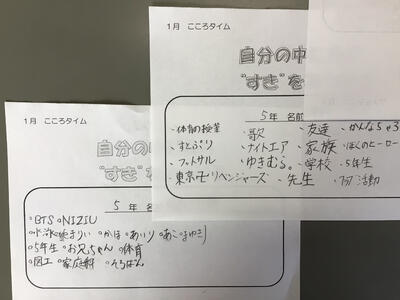 1月 こころタイム
自分の中
"すき"を
5年 名前
・体育の授業 ・歌 ・友達 ・かんなちゃん
・すとぷり ・ナイトエア ・家族 ・ぼくのヒーロー
・フットサル ・ゆきむら。 ・学校 ・5年生
・東京卍リベンジャーズ ・先生 ・クラブ活動
1月 こころタイム
自分の中
"すき"を
5年 名
○BTS ○NIZIU
○かほ ○あいり
○5年生 ○お兄ちゃん ○体育
○図工 ○家庭科 ○そろばん